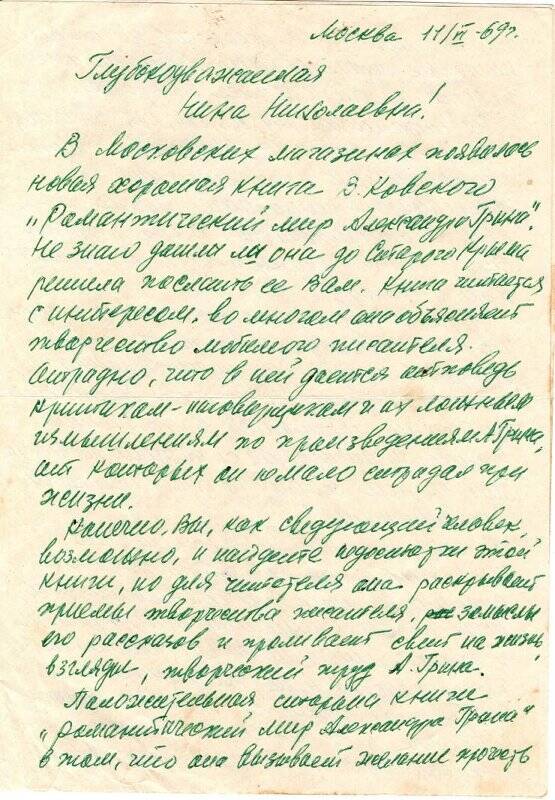 Москва 11/VI-69г.
Глубокоуважаемая
Нина Николаевна!
В Московских магазинах появилась
новая хорошая книга В. Ковского
„Романтический мир Александра Грина".
Не знаю дошли ли она до Старого Крыма
решила послать ее Вам. Книга читается
с интересом, во многом она объясняет
творчество любимого писателя.
Отрадно, что в ней дается отповедь
критикам-наговорщикам и их ложным
измышлениям по произведениям А Грина,
от которых он немало страдал при
жизни.
Конечно, Вы, как сведующий человек,
возможно, и найдете недостатки этой
книги, но для читателя она раскрывает
приемы творчества писателя, замыслы
его рассказов и проливает свет на жизнь
взгляды, творческий труд А. Грина.
Положительная сторона книги
„Романтический мир Александра Грина"
в том, что она вызывает желание прочесть